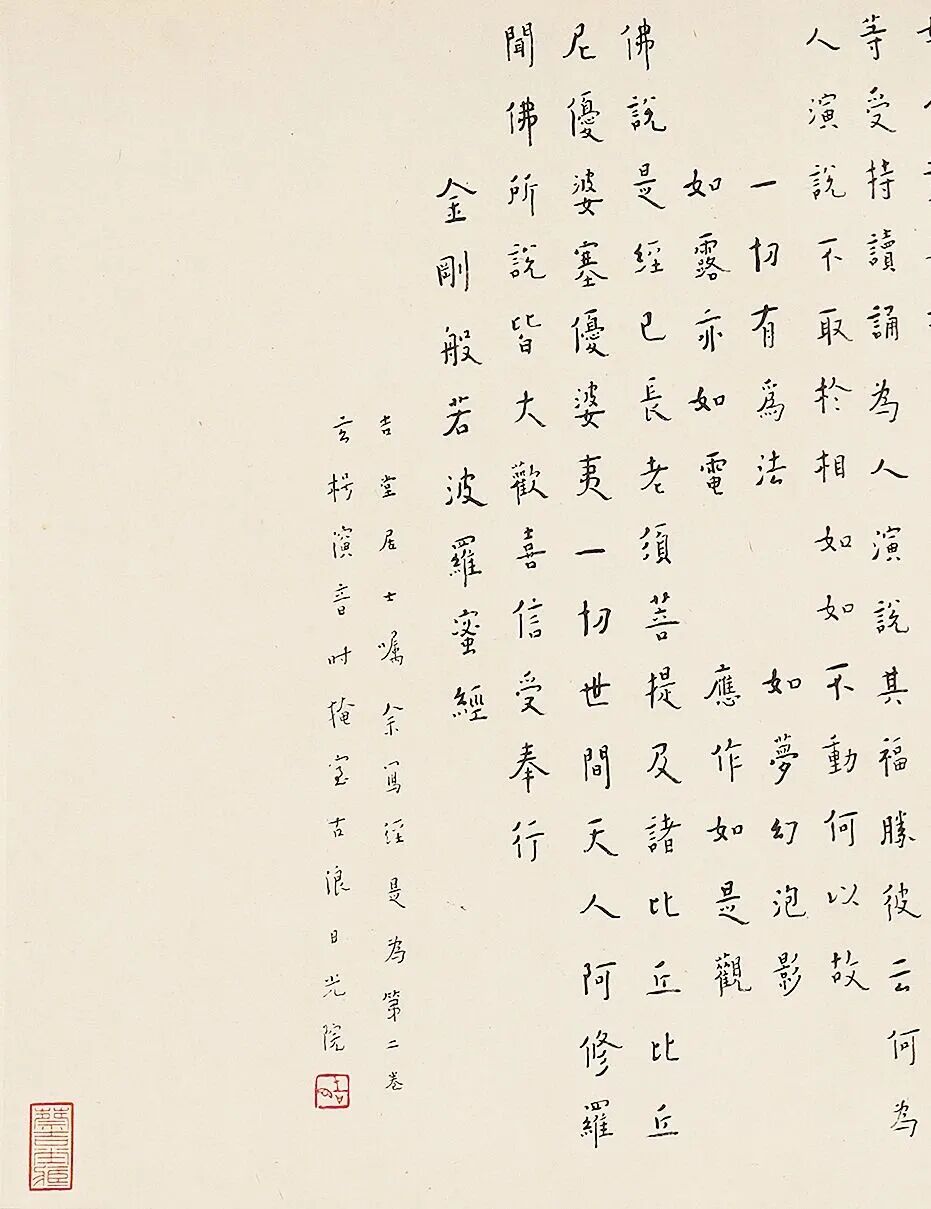 等受持讀誦為人演說其福勝彼云何為
人演說不取於相如如不動何以故
一切有為法 如夢幻泡影
如露亦如電 應作如是觀
佛說是經已長老須菩提及諸比丘比丘
尼優婆塞優婆夷一切世間天人阿修羅
聞佛所說皆大歡喜信受奉行
金剛般若波羅蜜經
吉堂居士嘱余写經是為第二卷
玄楞演音时掩室古浪日光院